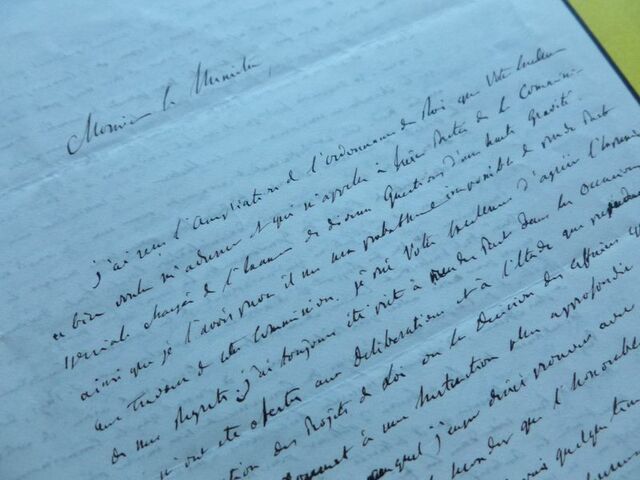 Monsieur le Ministre,
j'ai reçu l'ampliation de l'ordonnance du Roi que Votre Excellence
a bien voulu m'adresser et qui m'appelle à faire Partie de la Commission
spéciale chargée de l'examen de diverses questions d'une haute gravité.
ainsi que je l'avois prévu il me sera probablement impossible de prendre Part
aux travaux de cette Commission. je prie Votre Excellence d'agréer l'expression
de mes Regrets, j'ai toujours été prêt à prendre Part dans les occasions
qui m'ont été offertes aux délibérations et à l'étude que
des Projets de Loi ou la décision des affaires
à une instruction plus approfondie
auquel j'aurai désiré prouver
que l'honorable
quelque